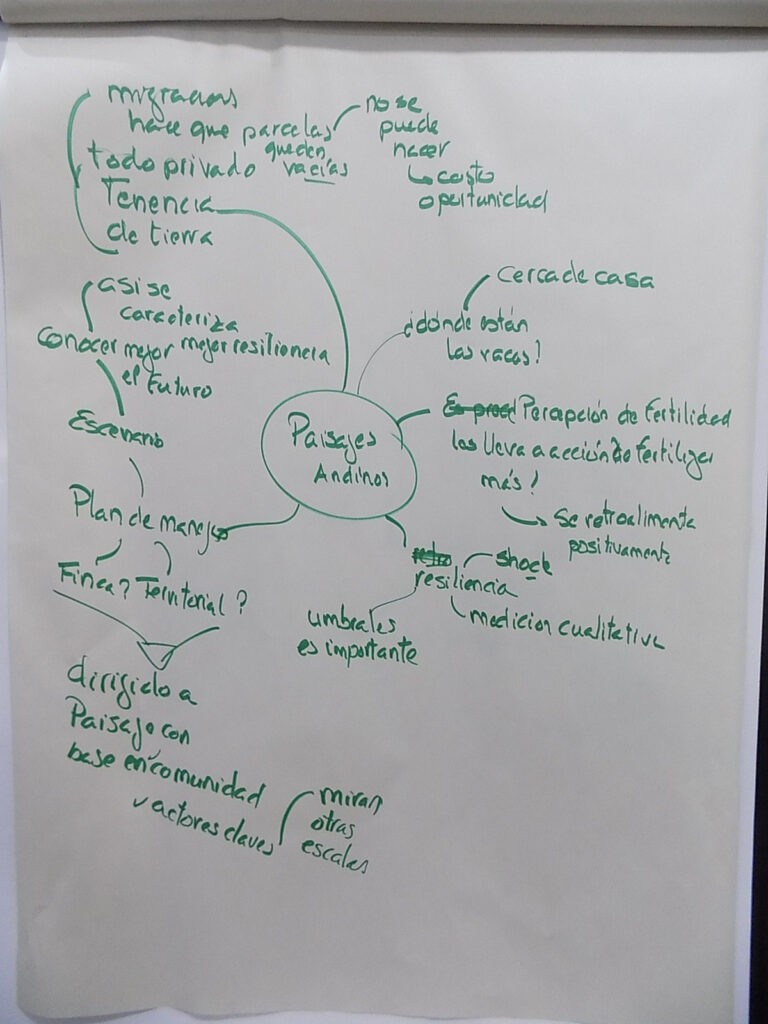 migraciones
hace que parcelas
queden
vacías
no se
puede
hacer
costo
oportunidad
todo privado
Tenencia
de tierra
así se
caracteriza
conocer mejor mejor resiliencia
el futuro
Escenario
Plan de manejo
Finca? Territorial?
dirigido a
Paisaje con
base en comunidad
y actores claves
miran
otras
escalas
Paisajes
Andinos
cerca de casa
¿dónde están
las vacas?
Percepción de fertilidad
los lleva a acción de fertilizar
más!
se retroalimenta
positivamente
shock
resiliencia
medicion cualitativa
umbrales
es importante